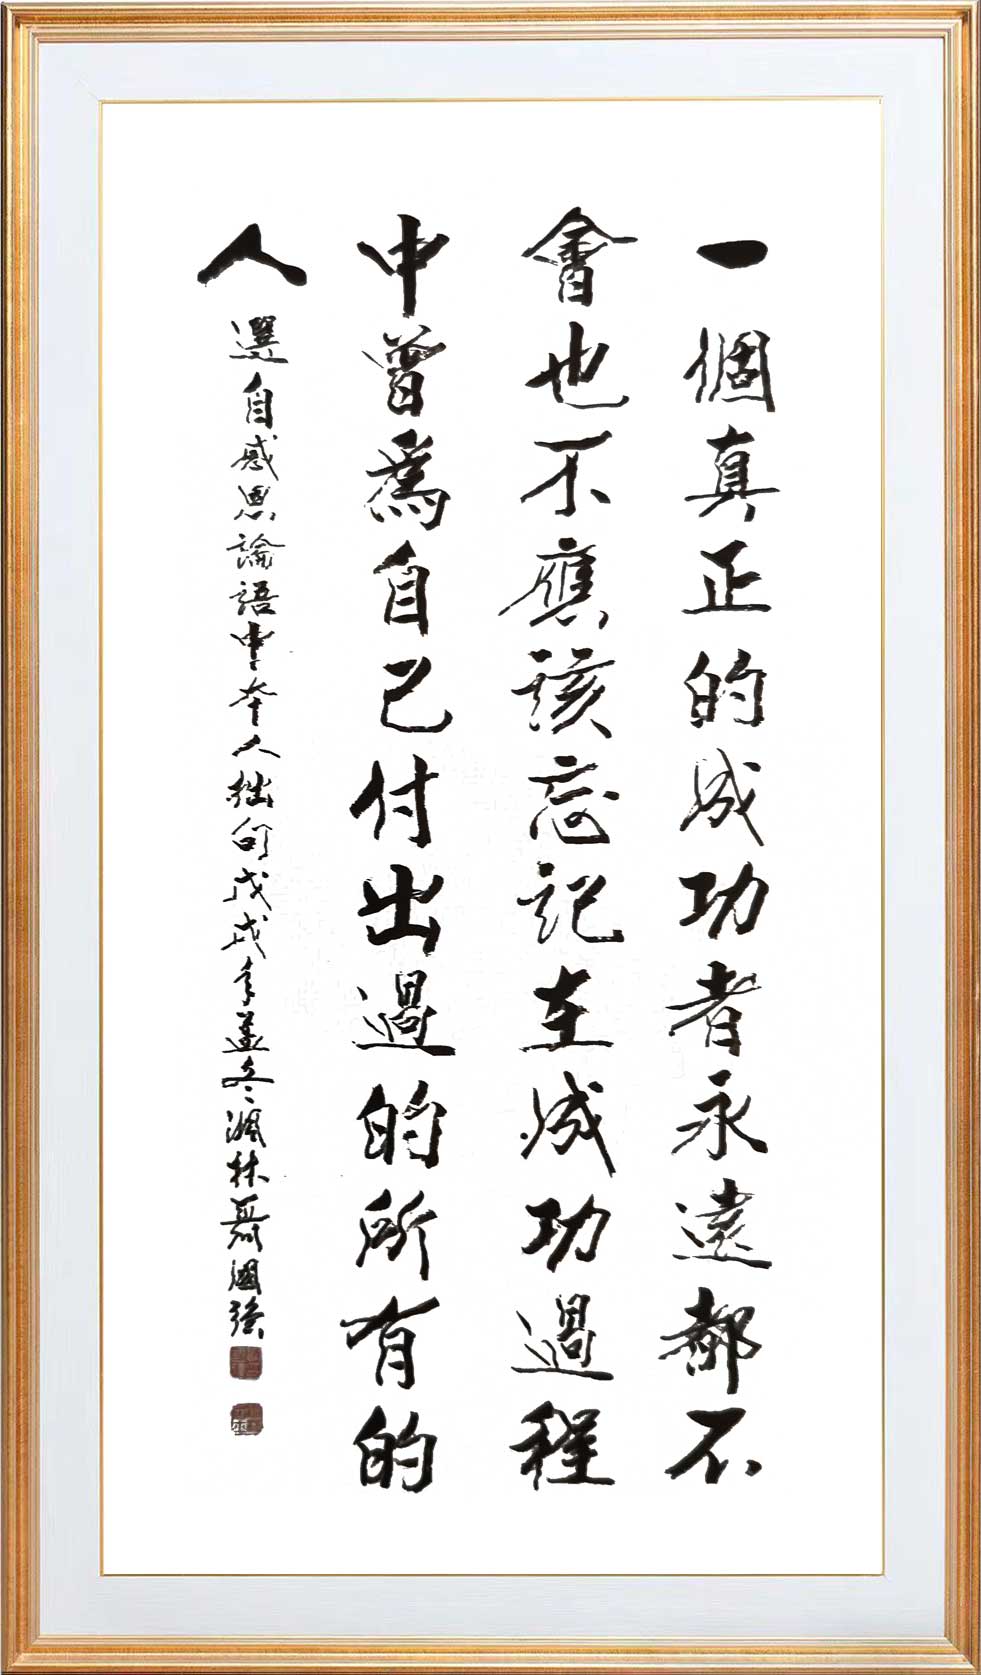 一個真正的成功者永遠都不
會也不應該忘記在成功過程
中曾爲自己付出過的所有的
人
選自感恩論語中本人拙句戊戌年孟冬楓林聶國強